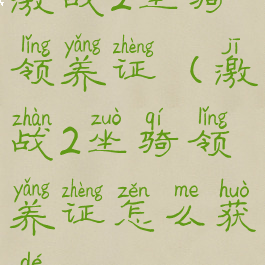 激战2坐骑
lǐng yǎng zhèng jī
领养证（激
zhàn zuò qí lǐng
战2坐骑领
yǎng zhèng zěn me huò
养证怎么获
dé